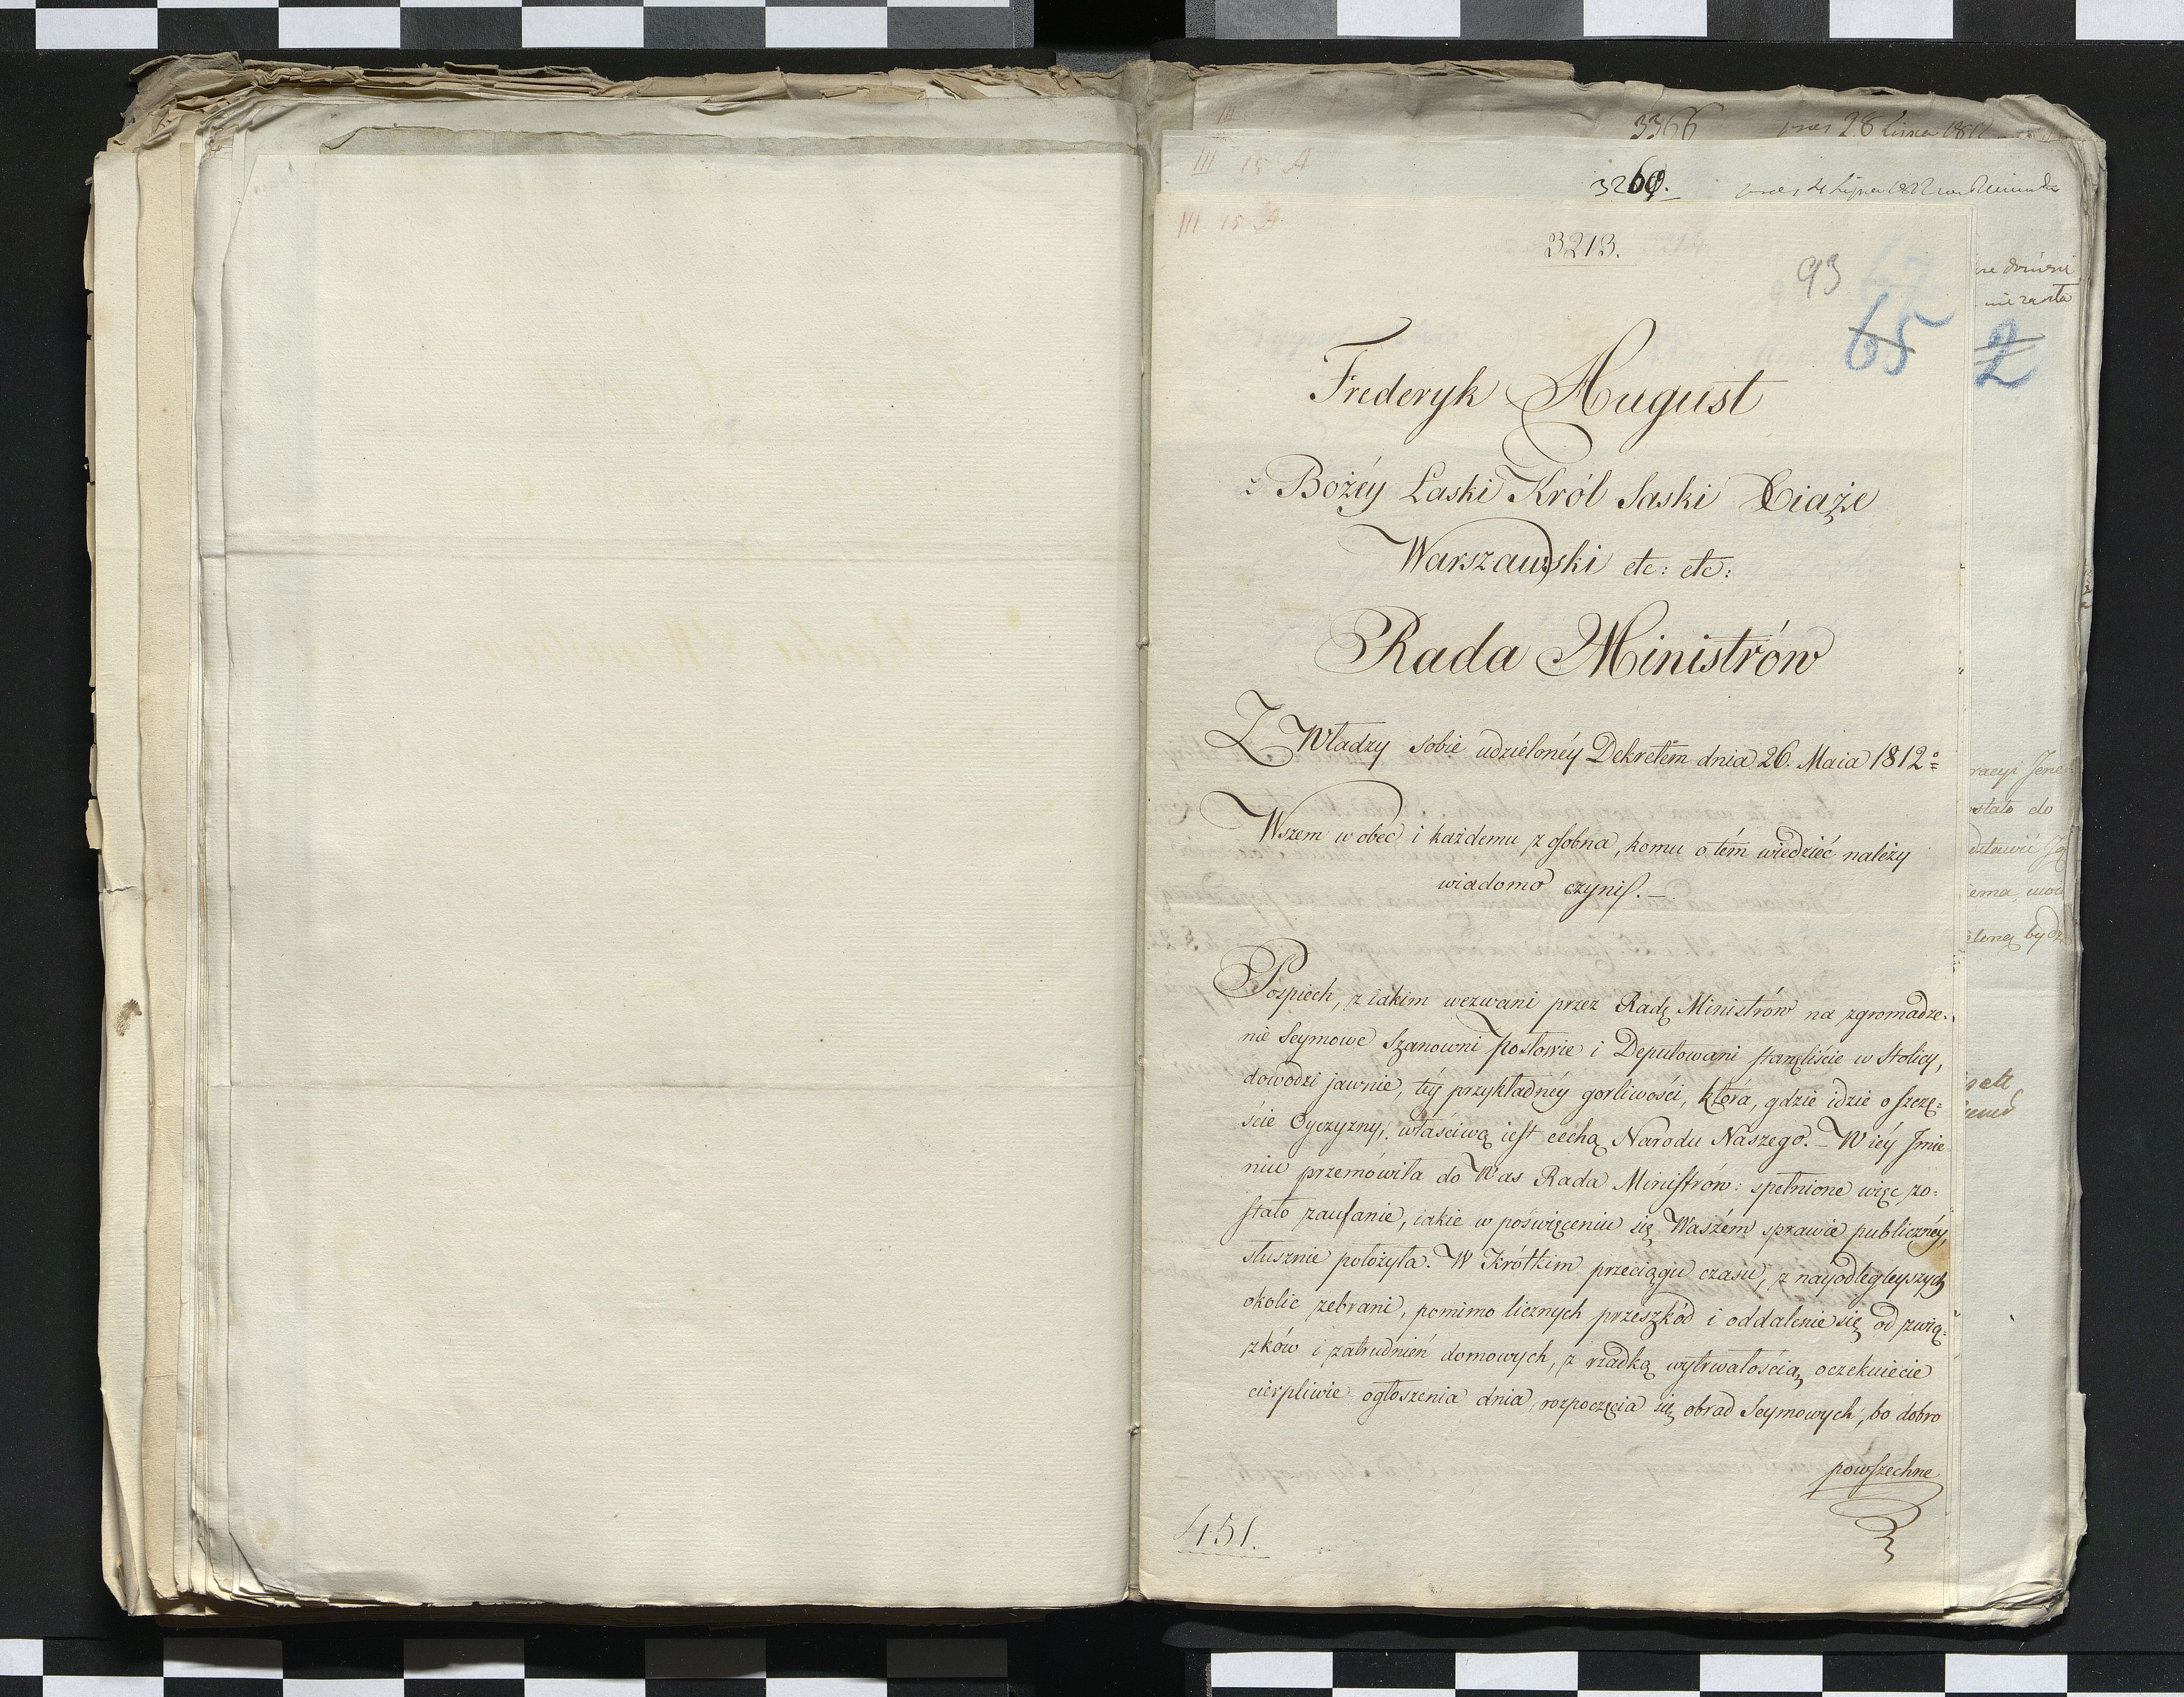 3366
28 Lipca 1812
III 15 A
3260.
III 15 A
3213.
93
65
2
Frederyk August
z Bożéy Łaski Król Saski Xiąże
Warszawski etc: etc:
Rada Ministrów
Z Władzy sobie udzielonéy Dekretem dnia 26. Maia 1812:
Wszem w obec i każdemu z osobna, komu o tém wiedzieć należy
wiadomo czyniſ. —
Pospiech, z iakim wezwani przez Radę Ministrów na zgromadze-
nie Seymowe Szanowni Posłowie i Deputowani stanęliście w Stolicy,
dowodzi jawnie, téy przykładnéy gorliwości, która, gdzie idzie o szczę=
ście Oyczyzny, właściwą iest cechą Narodu Naszego. — W iéy Jmie-
niu przemówiła do Was Rada Ministrów: spełnione więc zo=
stało zaufanie, iakie w poświęceniu się Waszém sprawie publicznéy,
słusznie położyła. W Krótkim przeciągu czasu, z nayodległeyszych
okolic zebrani, pomimo licznych przeszkód i oddalenie się od zwią=
zków i zatrudnień domowych, z rzadką wytrwałością, oczekuiecie
cierpliwie ogłoszenia dnia rozpoczęcia się obrad Seymowych, bo dobro
powszechne
451.